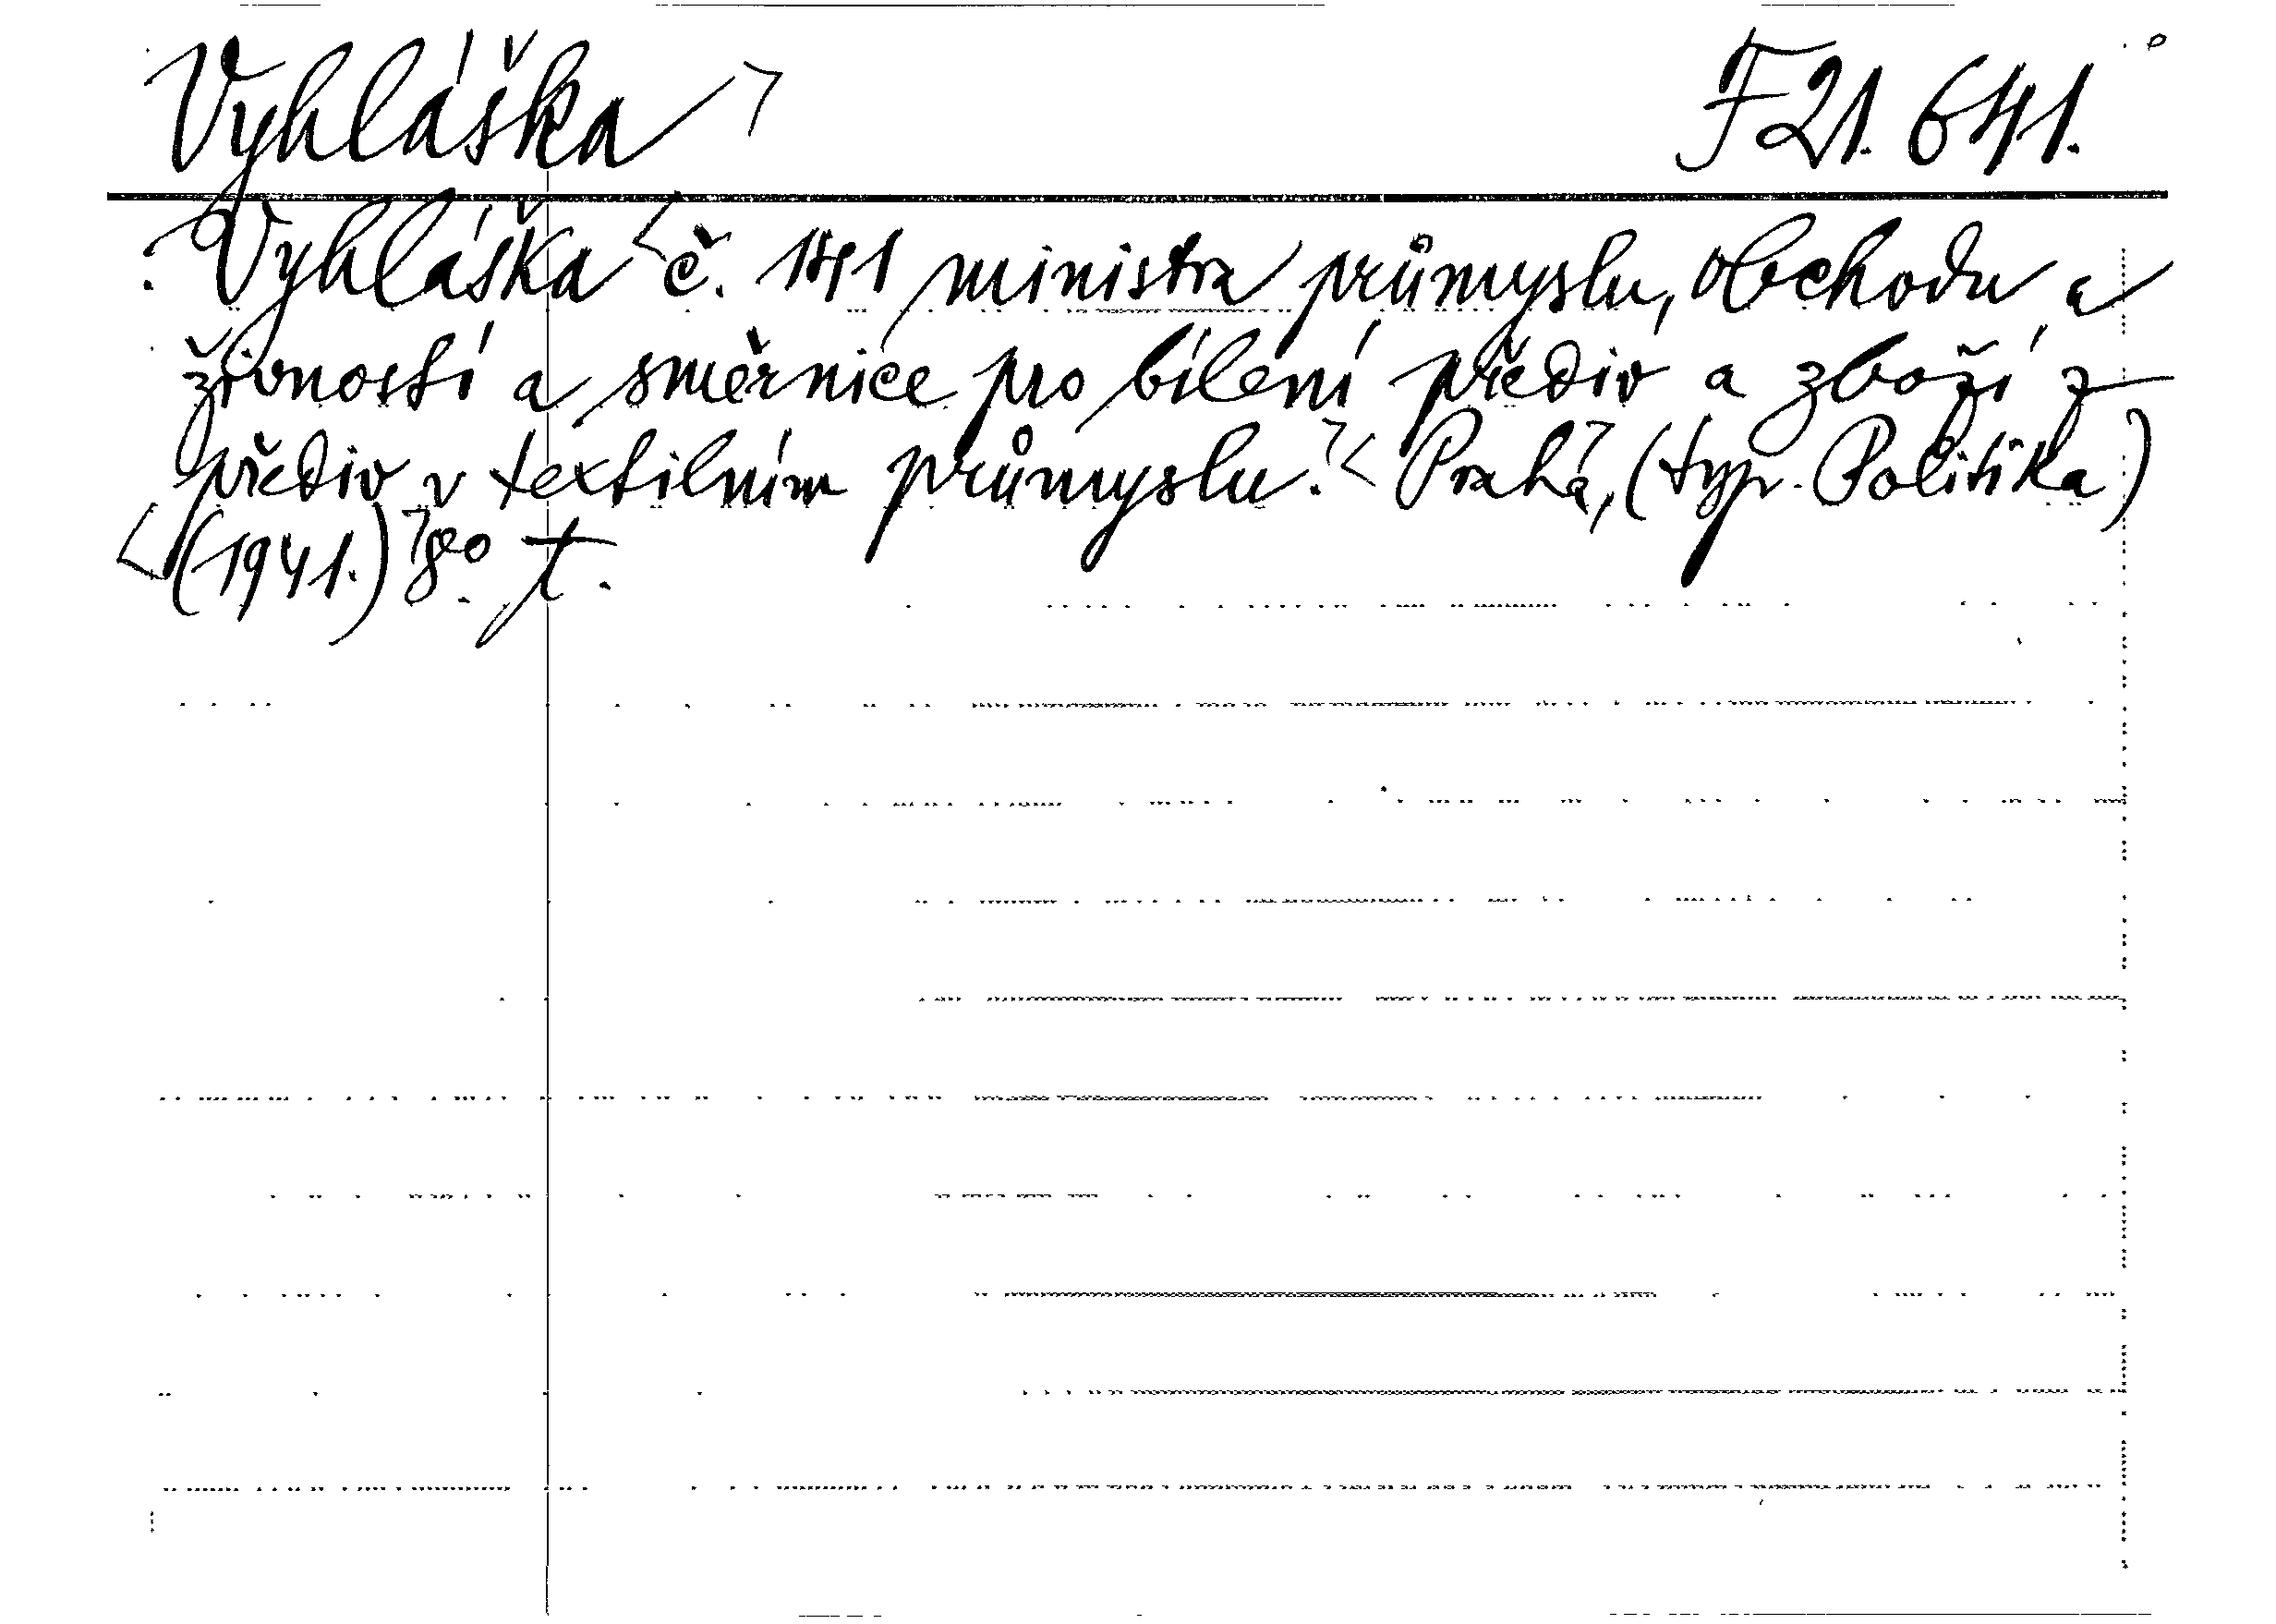 Vyhláška F 21.641.
Vyhláška č. 141 ministra průmyslu, obchodu a
živností a směrnice pro bílení přediv a zboží z
přediv v textilním průmyslu. Praha, (typ. Politika)
(1941.) 8o. †.